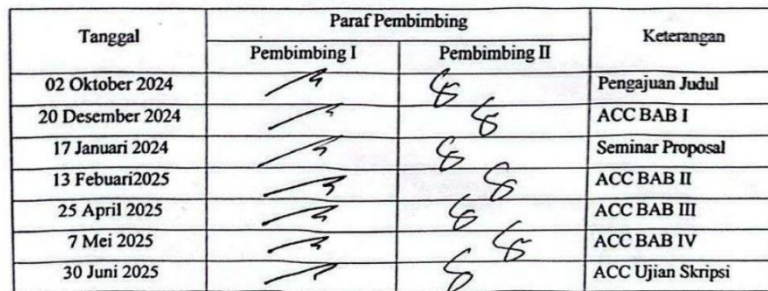 Tanggal Paraf Pembimbing Keterangan
Pembimbing I Pembimbing II
02 Oktober 2024 Pengajuan Judul
20 Desember 2024 ACC BAB I
17 Januari 2024 Seminar Proposal
13 Febuari2025 ACC BAB II
25 April 2025 ACC BAB III
7 Mei 2025 ACC BAB IV
30 Juni 2025 ACC Ujian Skripsi